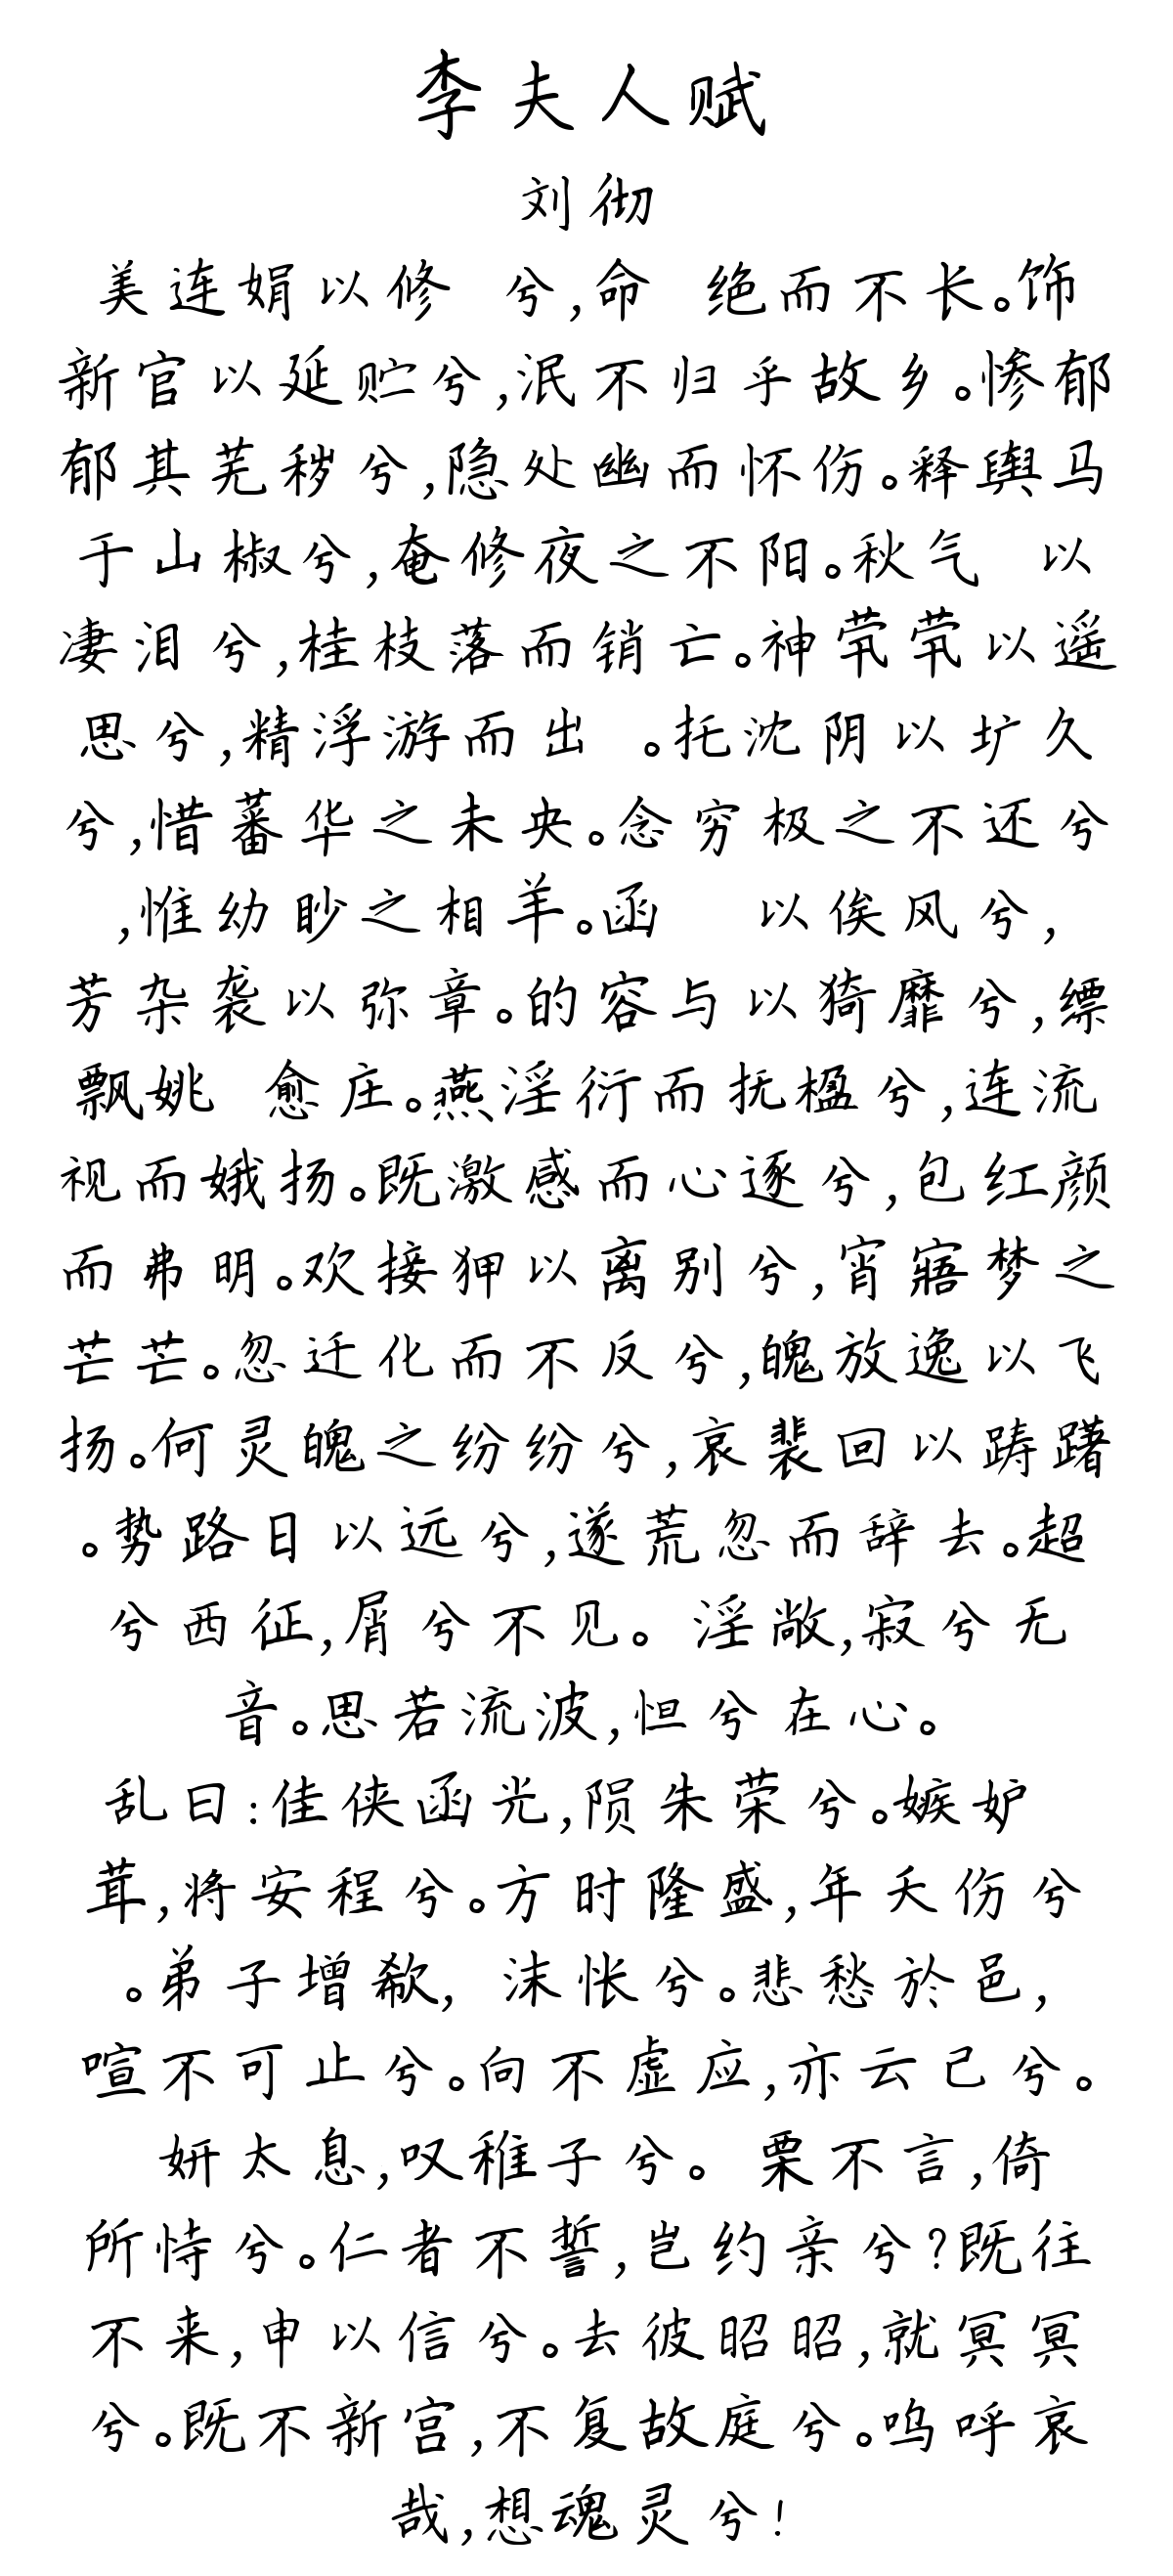 李夫人赋
刘彻
美连娟以修 兮,命 绝而不长。饰
新官以延贮兮,泯不归乎故乡。惨郁
郁其芜秽兮,隐处幽而怀伤。释舆马
于山椒兮,奄修夜之不阳。秋气 以
凄泪兮,桂枝落而销亡。神茕茕以遥
思兮,精浮游而出 。托沈阴以圹久
兮,惜蕃华之未央。念穷极之不还兮
,惟幼眇之相羊。函 以俟风兮,
芳杂袭以弥章。的容与以猗靡兮,缥
飘姚 愈庄。燕淫衍而抚楹兮,连流
视而娥扬。既激感而心逐兮,包红颜
而弗明。欢接狎以离别兮,宵寤梦之
芒芒。忽迁化而不反兮,魄放逸以飞
扬。何灵魄之纷纷兮,哀裴回以踌躇
。势路日以远兮,遂荒忽而辞去。超
兮西征,屑兮不见。 淫敞,寂兮无
音。思若流波,怛兮在心。
乱曰:佳侠函光,陨朱荣兮。嫉妒
茸,将安程兮。方时隆盛,年夭伤兮
。弟子增欷, 沫怅兮。悲愁於邑,
喧不可止兮。向不虚应,亦云己兮。
妍太息,叹稚子兮。 栗不言,倚
所恃兮。仁者不誓,岂约亲兮?既往
不来,申以信兮。去彼昭昭,就冥冥
兮。既不新宫,不复故庭兮。呜呼哀
哉,想魂灵兮!